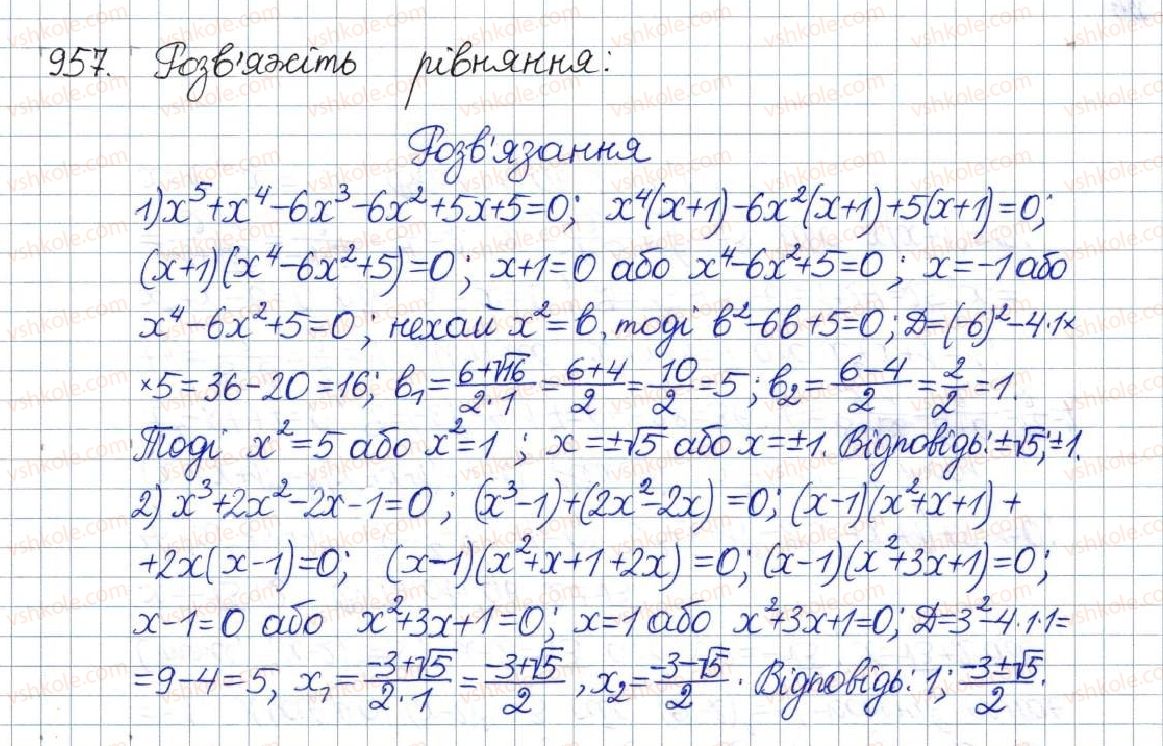 957. Розв'яжіть рівняння:
Розв'язання
1) x⁵+x⁴-6x³-6x²+5x+5=0; x⁴(x+1)-6x²(x+1)+5(x+1)=0;
(x+1)(x⁴-6x²+5)=0; x+1=0 або x⁴-6x²+5=0; x=-1 або
x⁴-6x²+5=0; нехай x²=в, тоді в²-6в+5=0; Д=(-6)²-4·1×
×5=36-20=16; в₁=(6+√16)/(2·1)=(6+4)/2=10/2=5; в₂=(6-4)/2=2/2=1.
Тоді x²=5 або x²=1; x=±√5 або x=±1. Відповідь: ±√5; ±1.
2) x³+2x²-2x-1=0; (x³-1)+(2x²-2x)=0; (x-1)(x²+x+1)+
+2x(x-1)=0; (x-1)(x²+x+1+2x)=0; (x-1)(x²+3x+1)=0;
x-1=0 або x²+3x+1=0; x=1 або x²+3x+1=0; Д=3²-4·1·1=
=9-4=5, x₁=(-3+√5)/(2·1)=(-3+√5)/2, x₂=(-3-√5)/2. Відповідь: 1; (-3±√5)/2.
vshkole.com